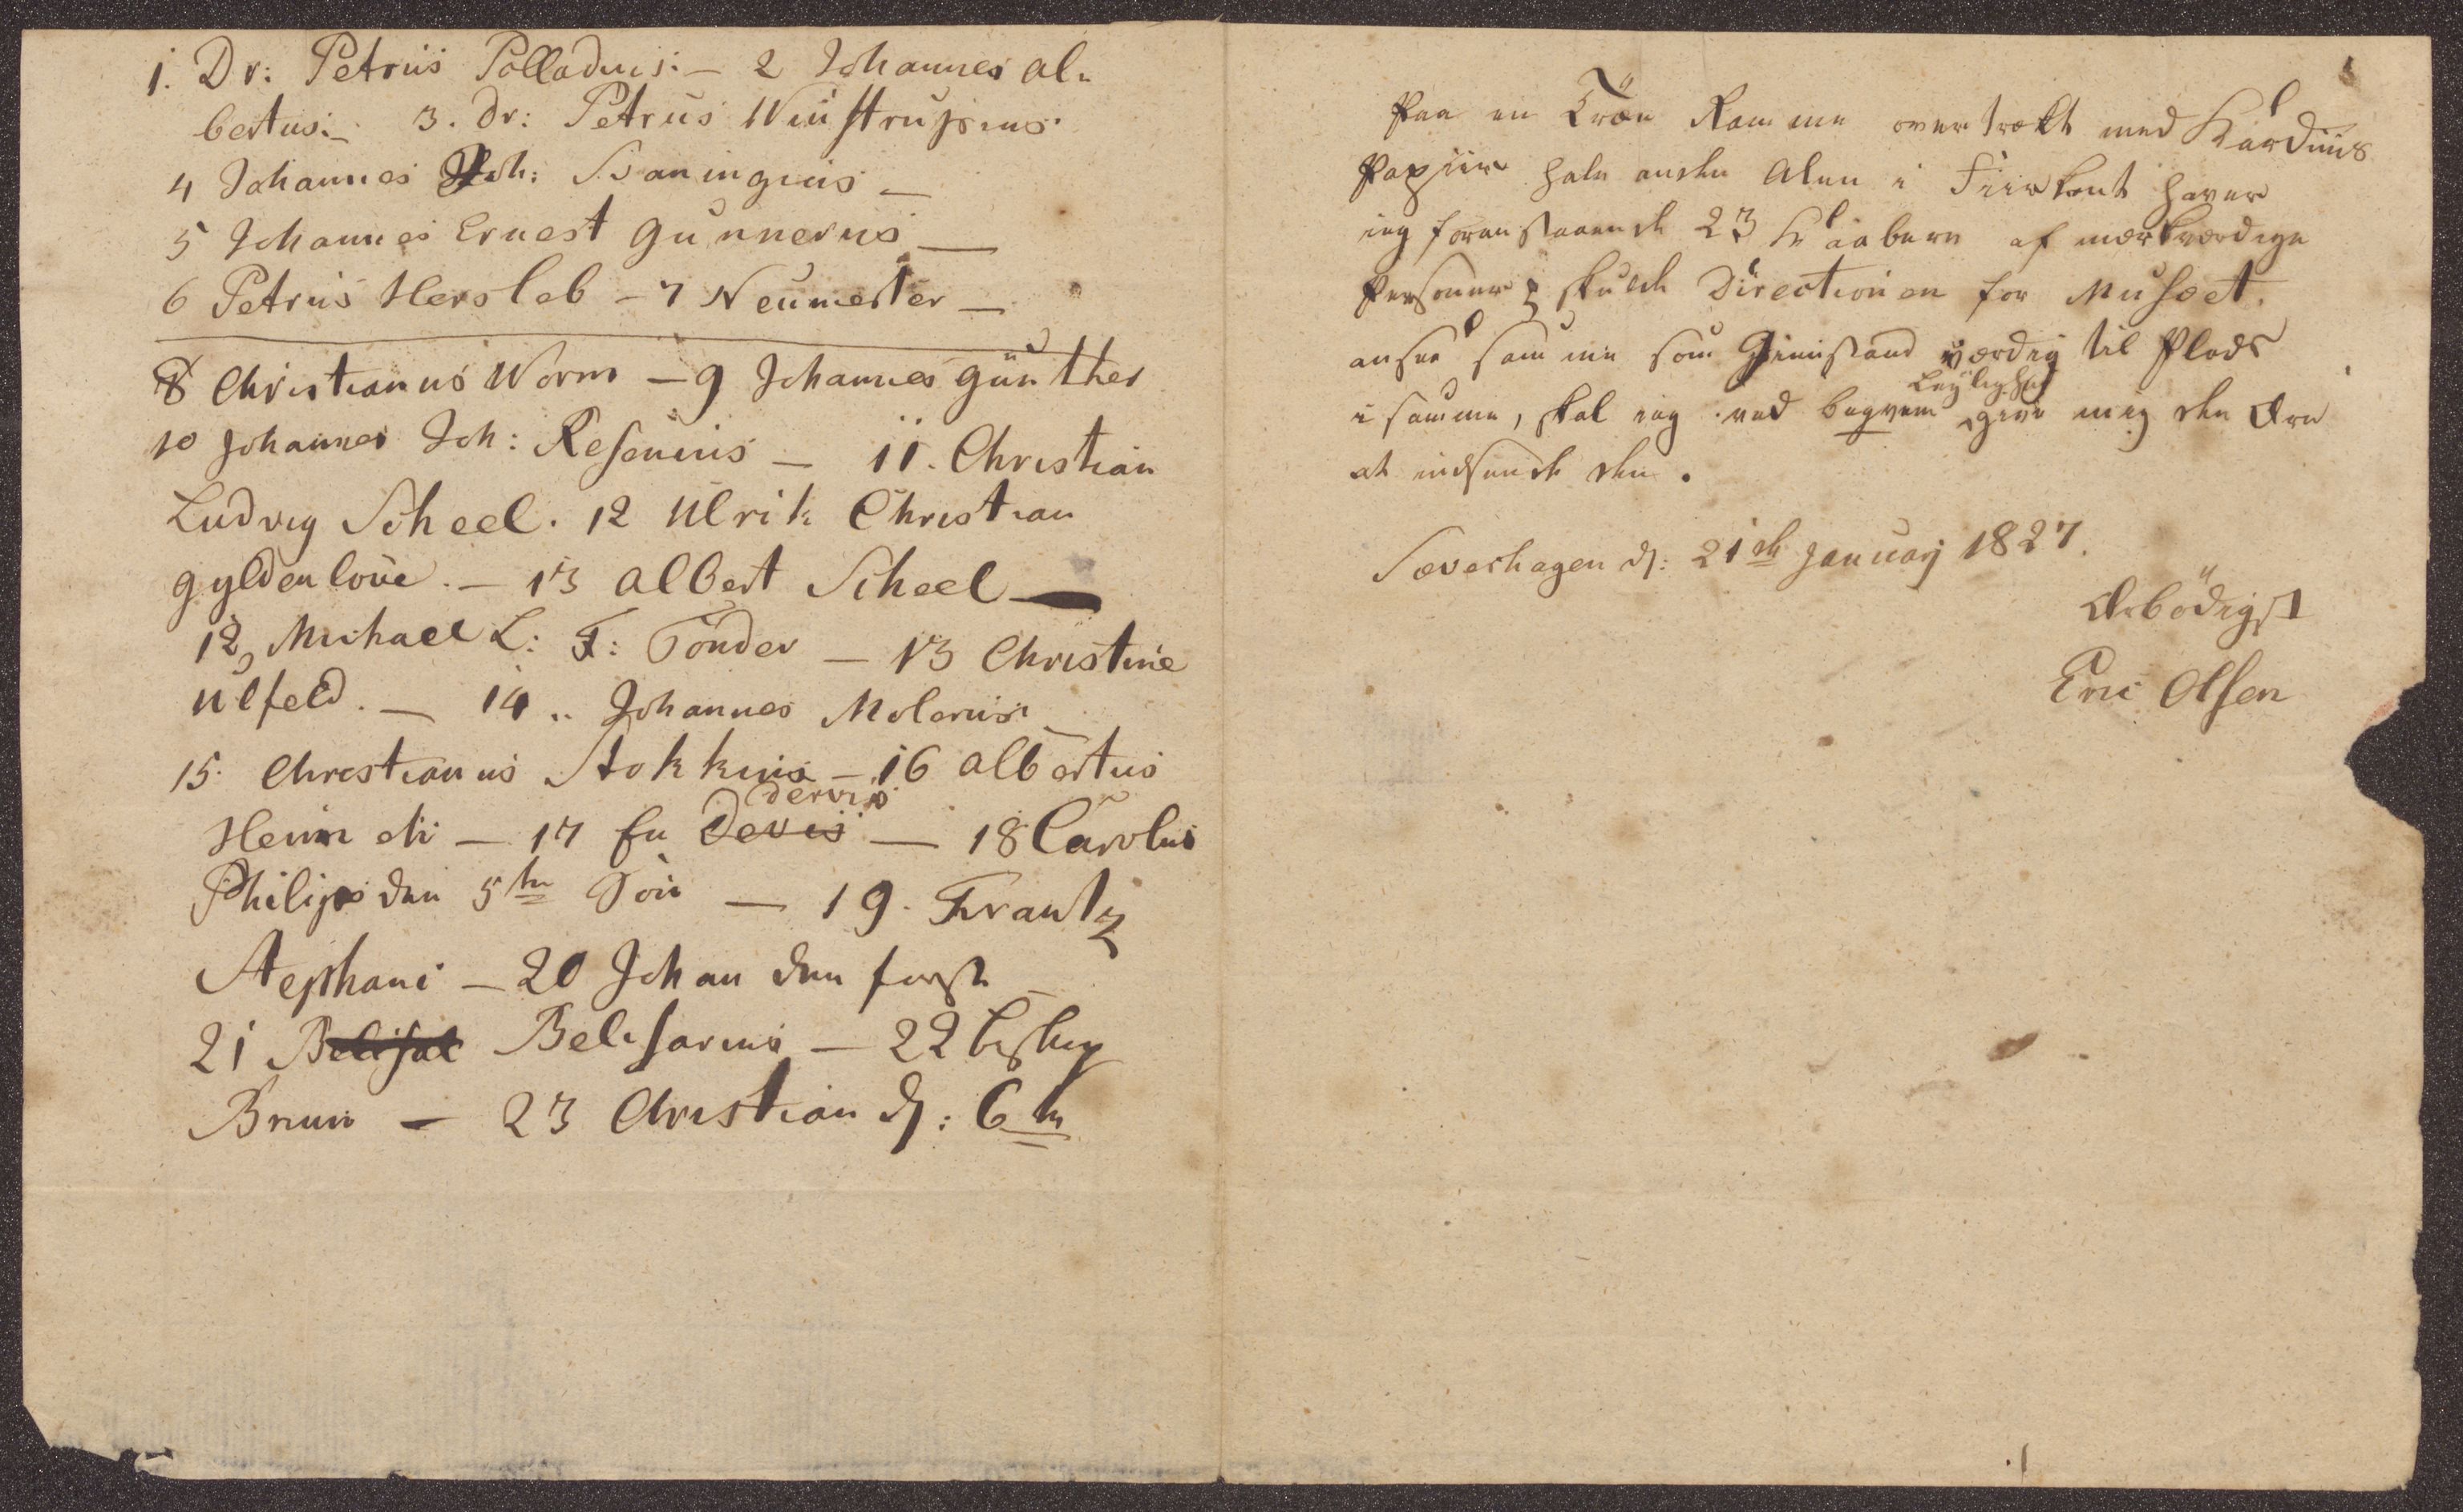 1. Dr: Petrus Polladius:— 2 Johannes Al-
bertus:— 3. Dr: Petrus Winstrupius
4 Johannes Joh: Svaningius —
5 Johannes Ernest Gunnerus —
6 Petrus Hersleb — 7 Neumester —
8 Christianus Worm — 9 Johannes Günther
10 Johannes Joh: Resenius — 11. Christian
Ludvig Scheel. 12 Ulrik Christian
Gyldenlöve. — 13 Albert Scheel —
12, Michael L: F: Tönder — 13 Christine
Ulfeld. — 14.. Johannes Molerus
15. Christianus Stokkius — 16 Albertus
dervis
Heim — 17 En Devis — 18 Carolus
Philip den 5te — 19. Frantz
Stephani — 20 Johan den første
21 Belisal Belisarius — 22 Biskop
Brun — 23 Christian d: 6te
Paa en Træe Ramme overtrækt med Karduus
Papiir halv anden Alen i Fiirkant haver
ieg foranstaaende 23 Kaabere af mærkværdige
Personer; skulde Directionen for Musæet
ansee samme som Gienstand værdig til Plads
Leylighed
i samme, skal ieg ved beqvem give mig den Ære
at indsende den.
Sæveshagen d: 21de Januarj 1827.
Ærbödigst
Eric Olsen